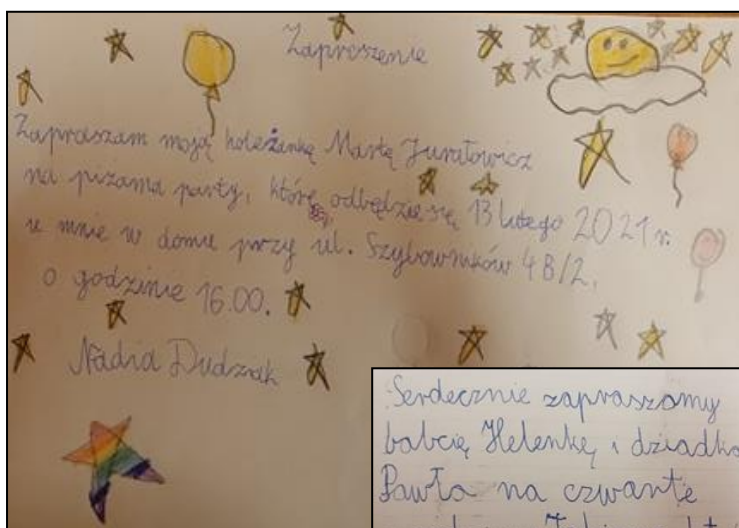 Zaproszenie
Zapraszam moją koleżankę Martę
na piżama party, które odbędzie się 13 lutego 2021 r.
u mnie w domu przy ul. Szybowników 4B/2,
o godzinie 16.00.
Nadia Dudziak
Serdecznie zapraszamy
babcię Helenkę i dziadka
Pawła na czwarte